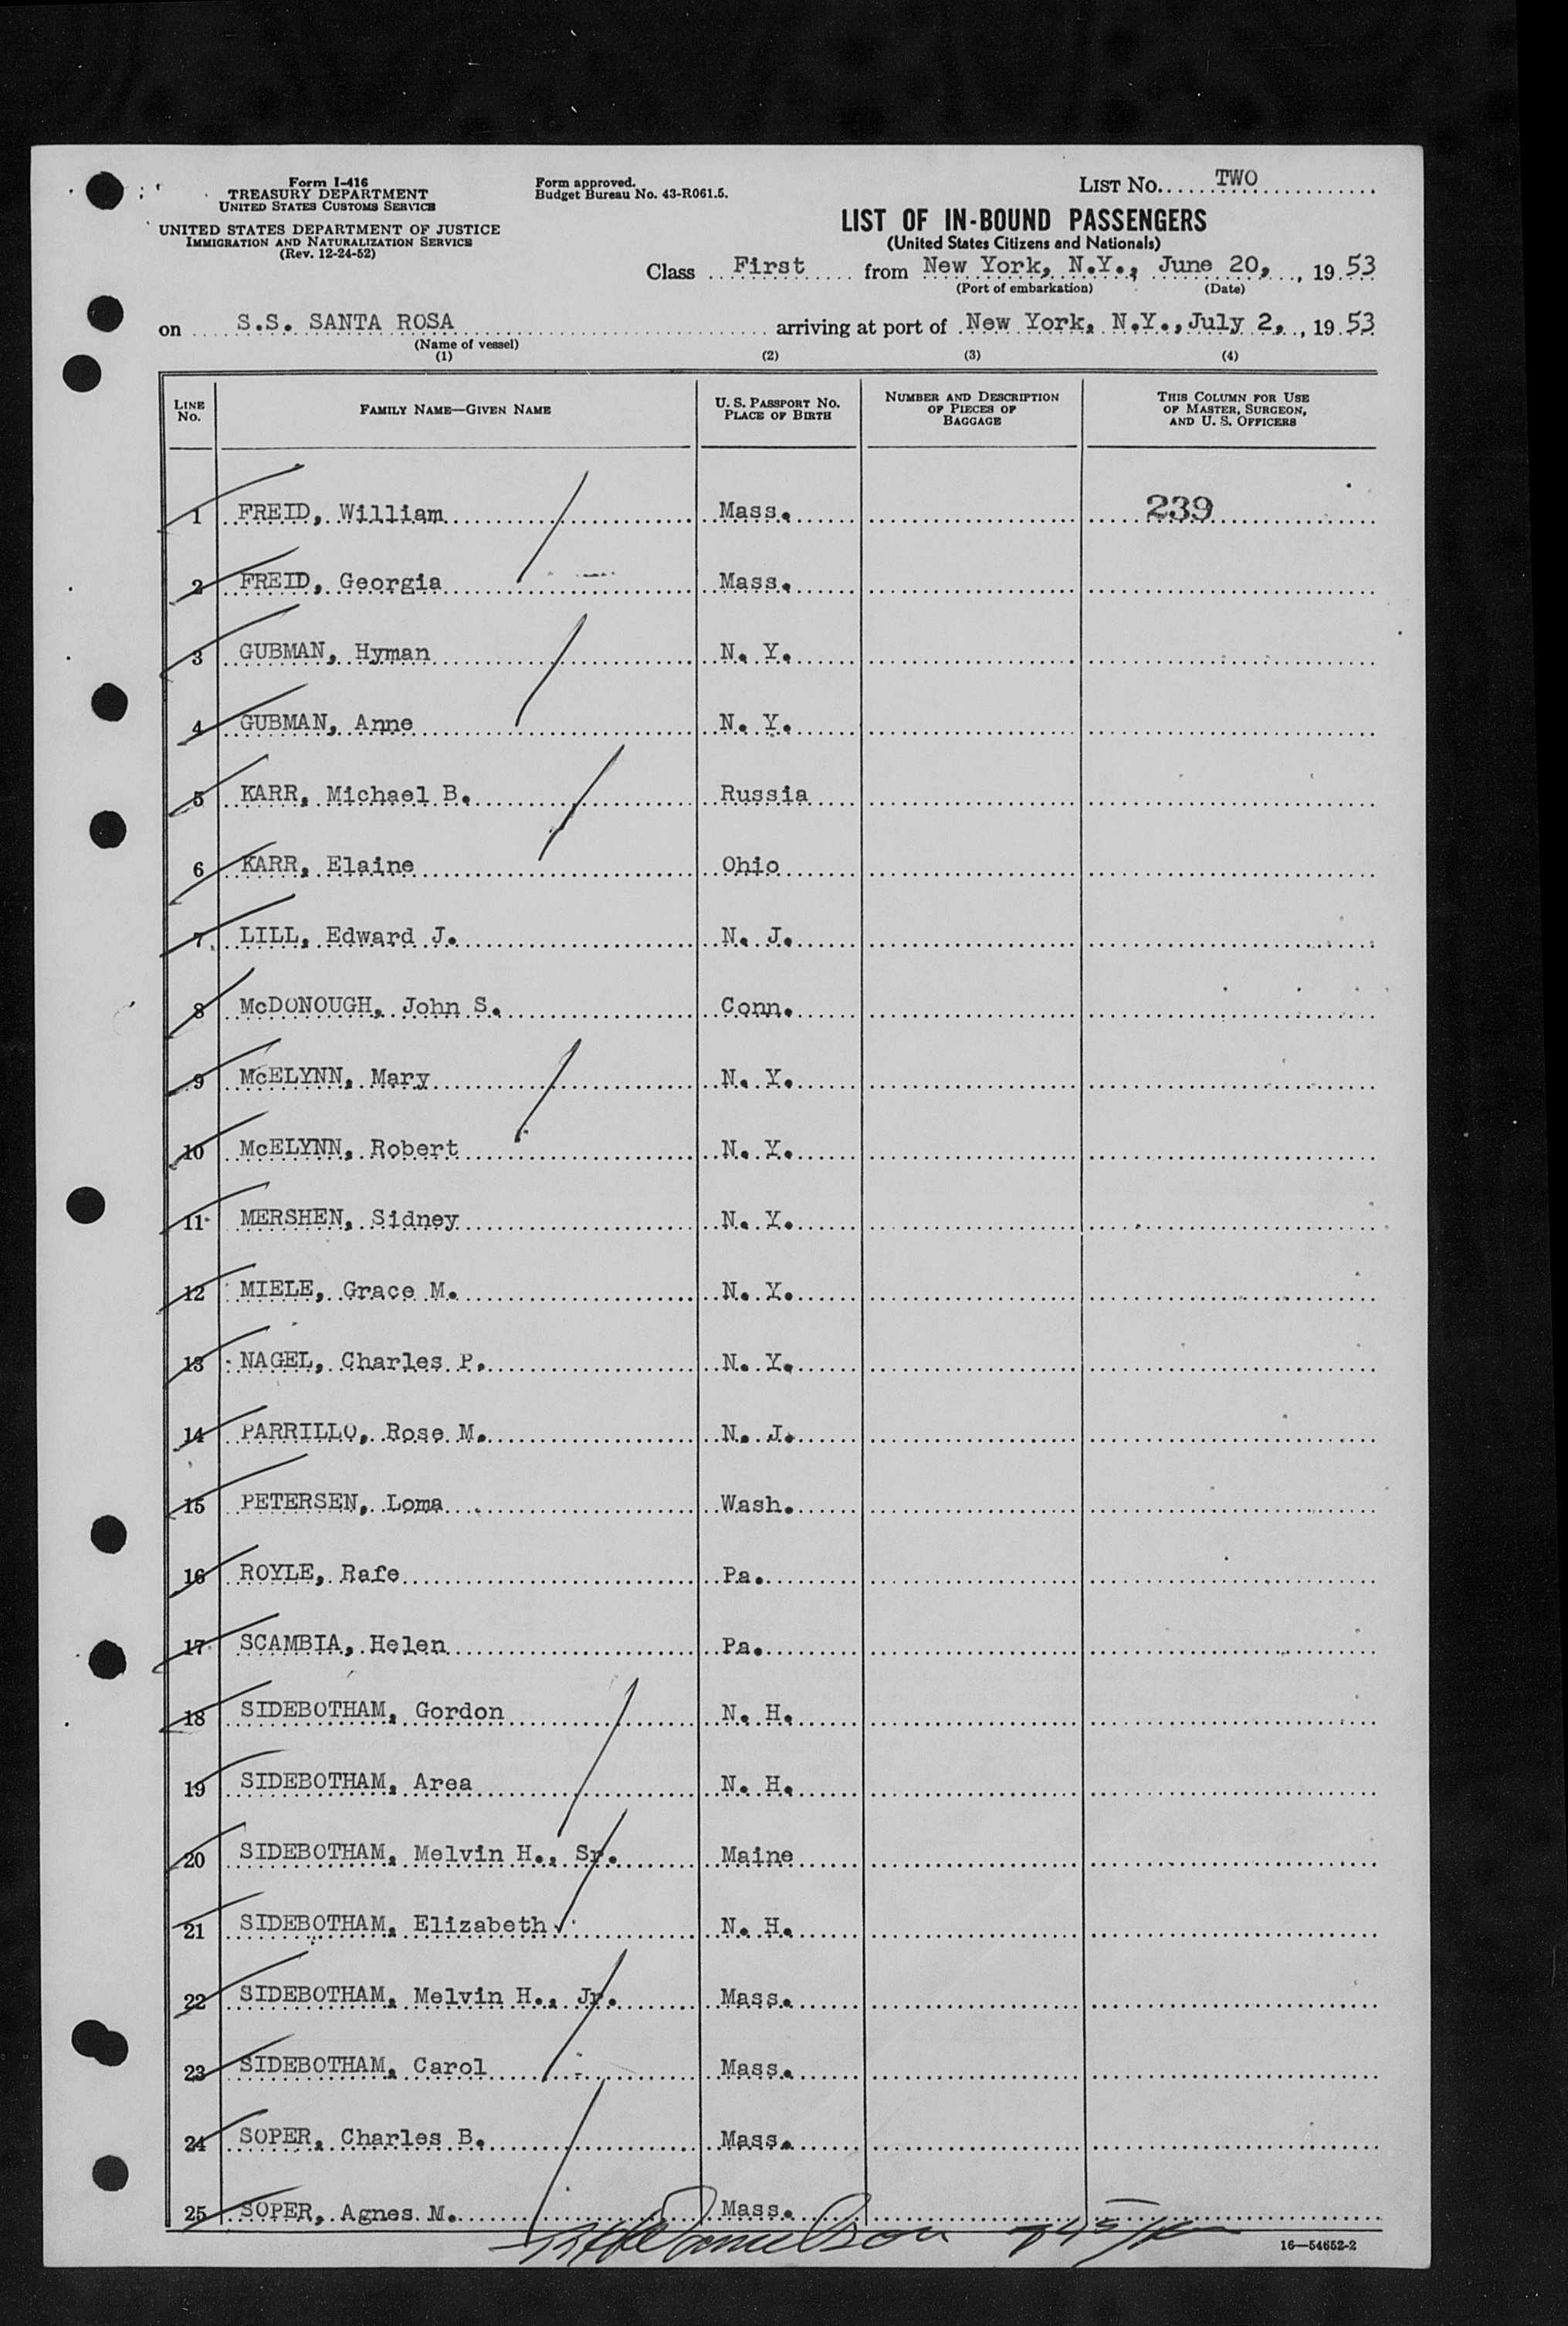 Form I-416
TREASURY DEPARTMENT
UNITED STATES CUSTOMS SERVICE
UNITED STATES DEPARTMENT OF JUSTICE
IMMIGRATION AND NATURALIZATION SERVICE
(Rev. 12-24-52)
Form approved.
Budget Bureau No. 43-R061.5.
LIST No. TWO
LIST OF IN-BOUND PASSENGERS
(United States Citizens and Nationals)
Class First from New York, N.Y., June 20, , 19 53
(Port of embarkation) (Date)
on S.S. SANTA ROSA arriving at port of New York, N.Y., July 2, , 19 53
(Name of vessel)
(1) (2) (3) (4)
LINE No. FAMILY NAME—GIVEN NAME U. S. PASSPORT No. PLACE OF BIRTH NUMBER AND DESCRIPTION OF PIECES OF BAGGAGE THIS COLUMN FOR USE OF MASTER, SURGEON, AND U. S. OFFICERS
1 FREID, William Mass. 239
2 FREID, Georgia Mass.
3 GUBMAN, Hyman N. Y.
4 GUBMAN, Anne N. Y.
5 KARR, Michael B. Russia
6 KARR, Elaine Ohio
7 LILL, Edward J. N. J.
8 McDONOUGH, John S. Conn.
9 McELYNN, Mary N. Y.
10 McELYNN, Robert N. Y.
11 MERSHEN, Sidney N. Y.
12 MIELE, Grace M. N. Y.
13 NAGEL, Charles P. N. Y.
14 PARRILLO, Rose M. N. J.
15 PETERSEN, Loma Wash.
16 ROYLE, Rafe Pa.
17 SCAMBIA, Helen Pa.
18 SIDEBOTHAM, Gordon N. H.
19 SIDEBOTHAM, Area N. H.
20 SIDEBOTHAM, Melvin H., Sr. Maine
21 SIDEBOTHAM, Elizabeth N. H.
22 SIDEBOTHAM, Melvin H., Jr. Mass.
23 SIDEBOTHAM, Carol Mass.
24 SOPER, Charles B. Mass.
25 SOPER, Agnes M. Mass.
16—54652-2